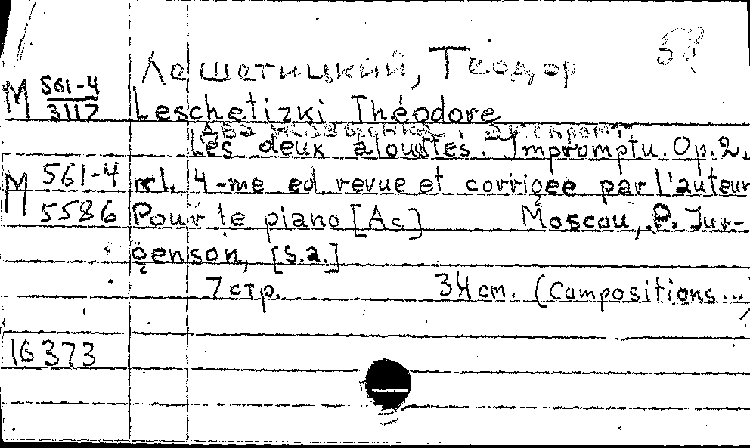 Лешетицкий, Теодор 58
М 561-4
3117 Leschetizki Théodore
Два жаворонка
Les deux alouettes. Impromptu. Op. 2,
М 561-4 nr1. 4-me ed. revue et corrigée par l'auteur
5586 Pour le piano [As] Moscou, P. Jur-
genson, [s.a.]
7 стр. 34 cm. (Compositions...
16373